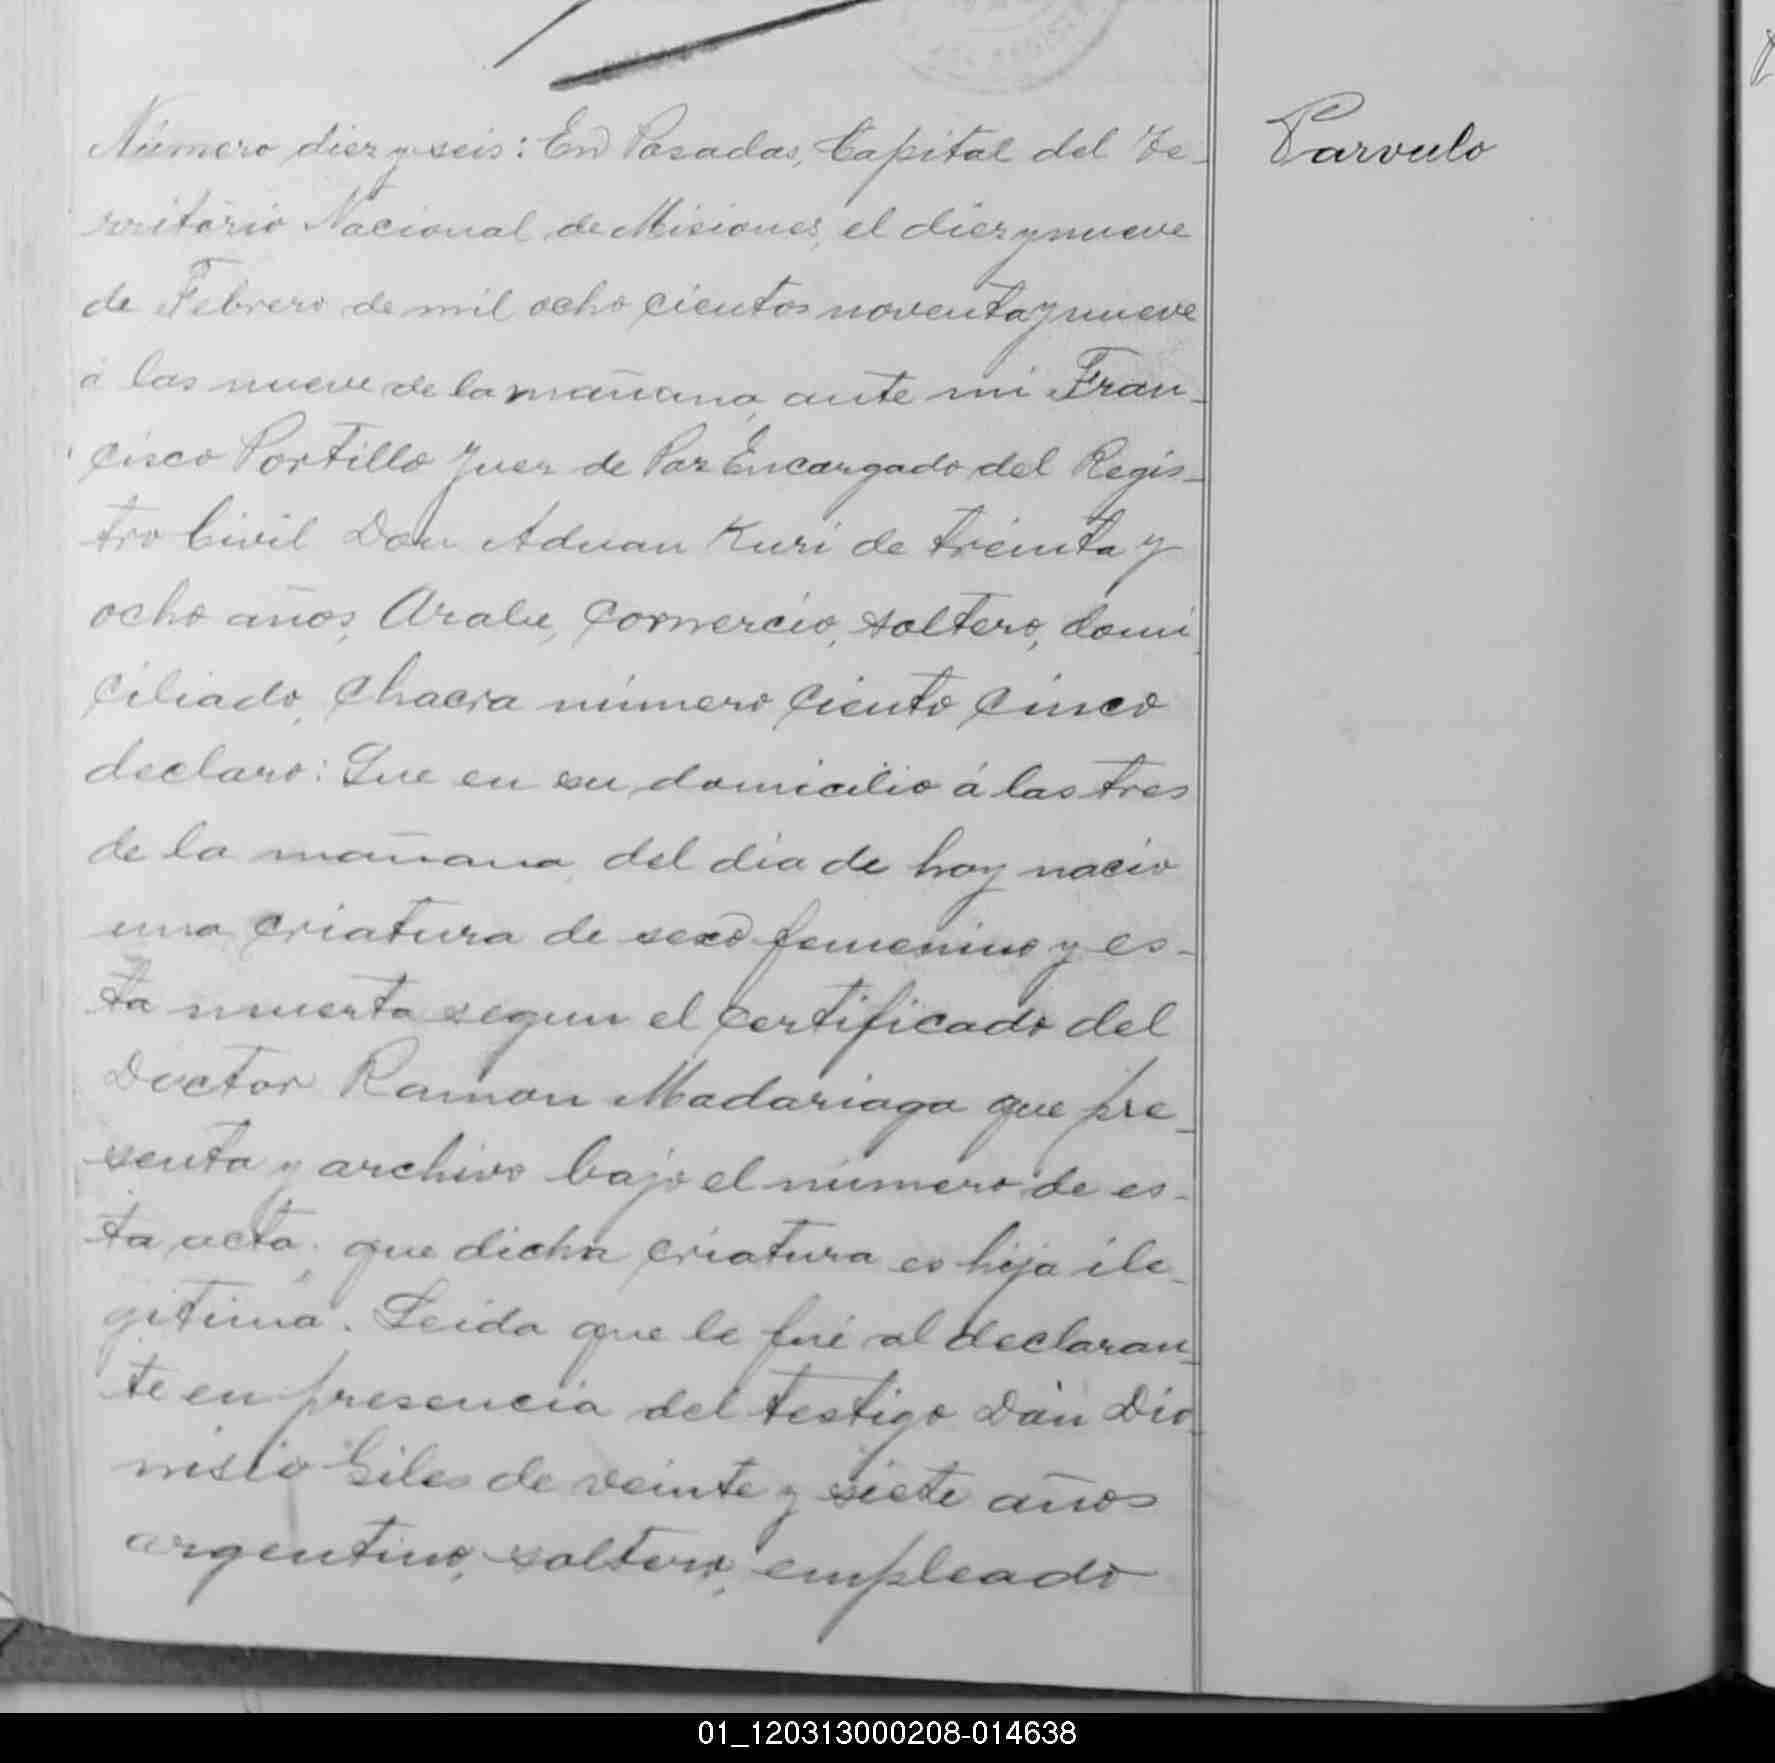 Número diez y seis: En Posadas, Capital del Te-
rritorio Nacional de Misiones, el diez y nueve
de Febrero de mil ocho cientos noventa y nueve
á las nueve de la mañana, ante mi Fran-
cisco Portillo Juez de Paz Encargado del Regis-
tro Civil Don Aduan Kuri de treinta y
ocho años, Arabe, Comercio, soltero, domi
ciliado, Chacra número ciento cinco
declaro: Que en su domicilio á las tres
de la mañana, del dia de hoy nacio
una criatura de sexo femenino y es-
ta muerta segun el certificado del
Doctor Ramon Madariaga que pre-
senta y archivo bajo el número de es-
ta acta. que dicha criatura es hija ile-
gitima. Leida que le fué al declaran-
te en presencia del testigo Don Dio-
nisio Giles de veinte y siete años
argentino, soltero, empleado
Parvulo
01_120313000208-014638